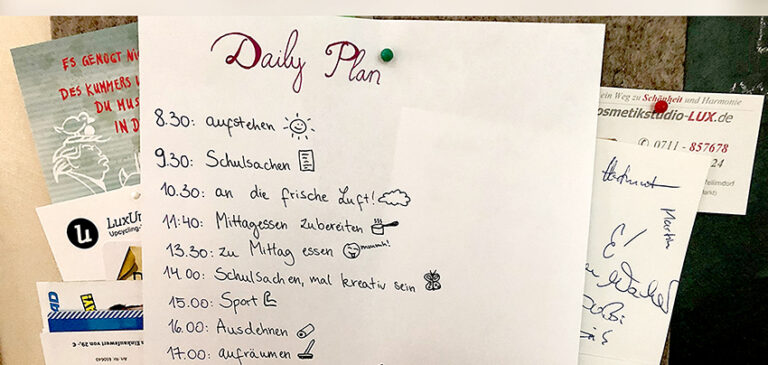 Daily Plan
8.30: aufstehen
9.30: Schulsachen
10.30: an die frische Luft!
11:40: Mittagessen zubereiten
13.30: zu Mittag essen mmmh!
14.00: Schulsachen, mal kreativ sein
15.00: Sport
16.00: Ausdehnen
17.00: aufräumen
ES GENÜGT NI
DES KUMMERS
DU MUS
IN D
LuxUn
Upcycling-
Einkaufswert von 29,- €
Art.-Nr.
ein Weg zu Schönheit und Harmonie
osmetikstudio-LUX.de
0711 - 857678
24
Martin